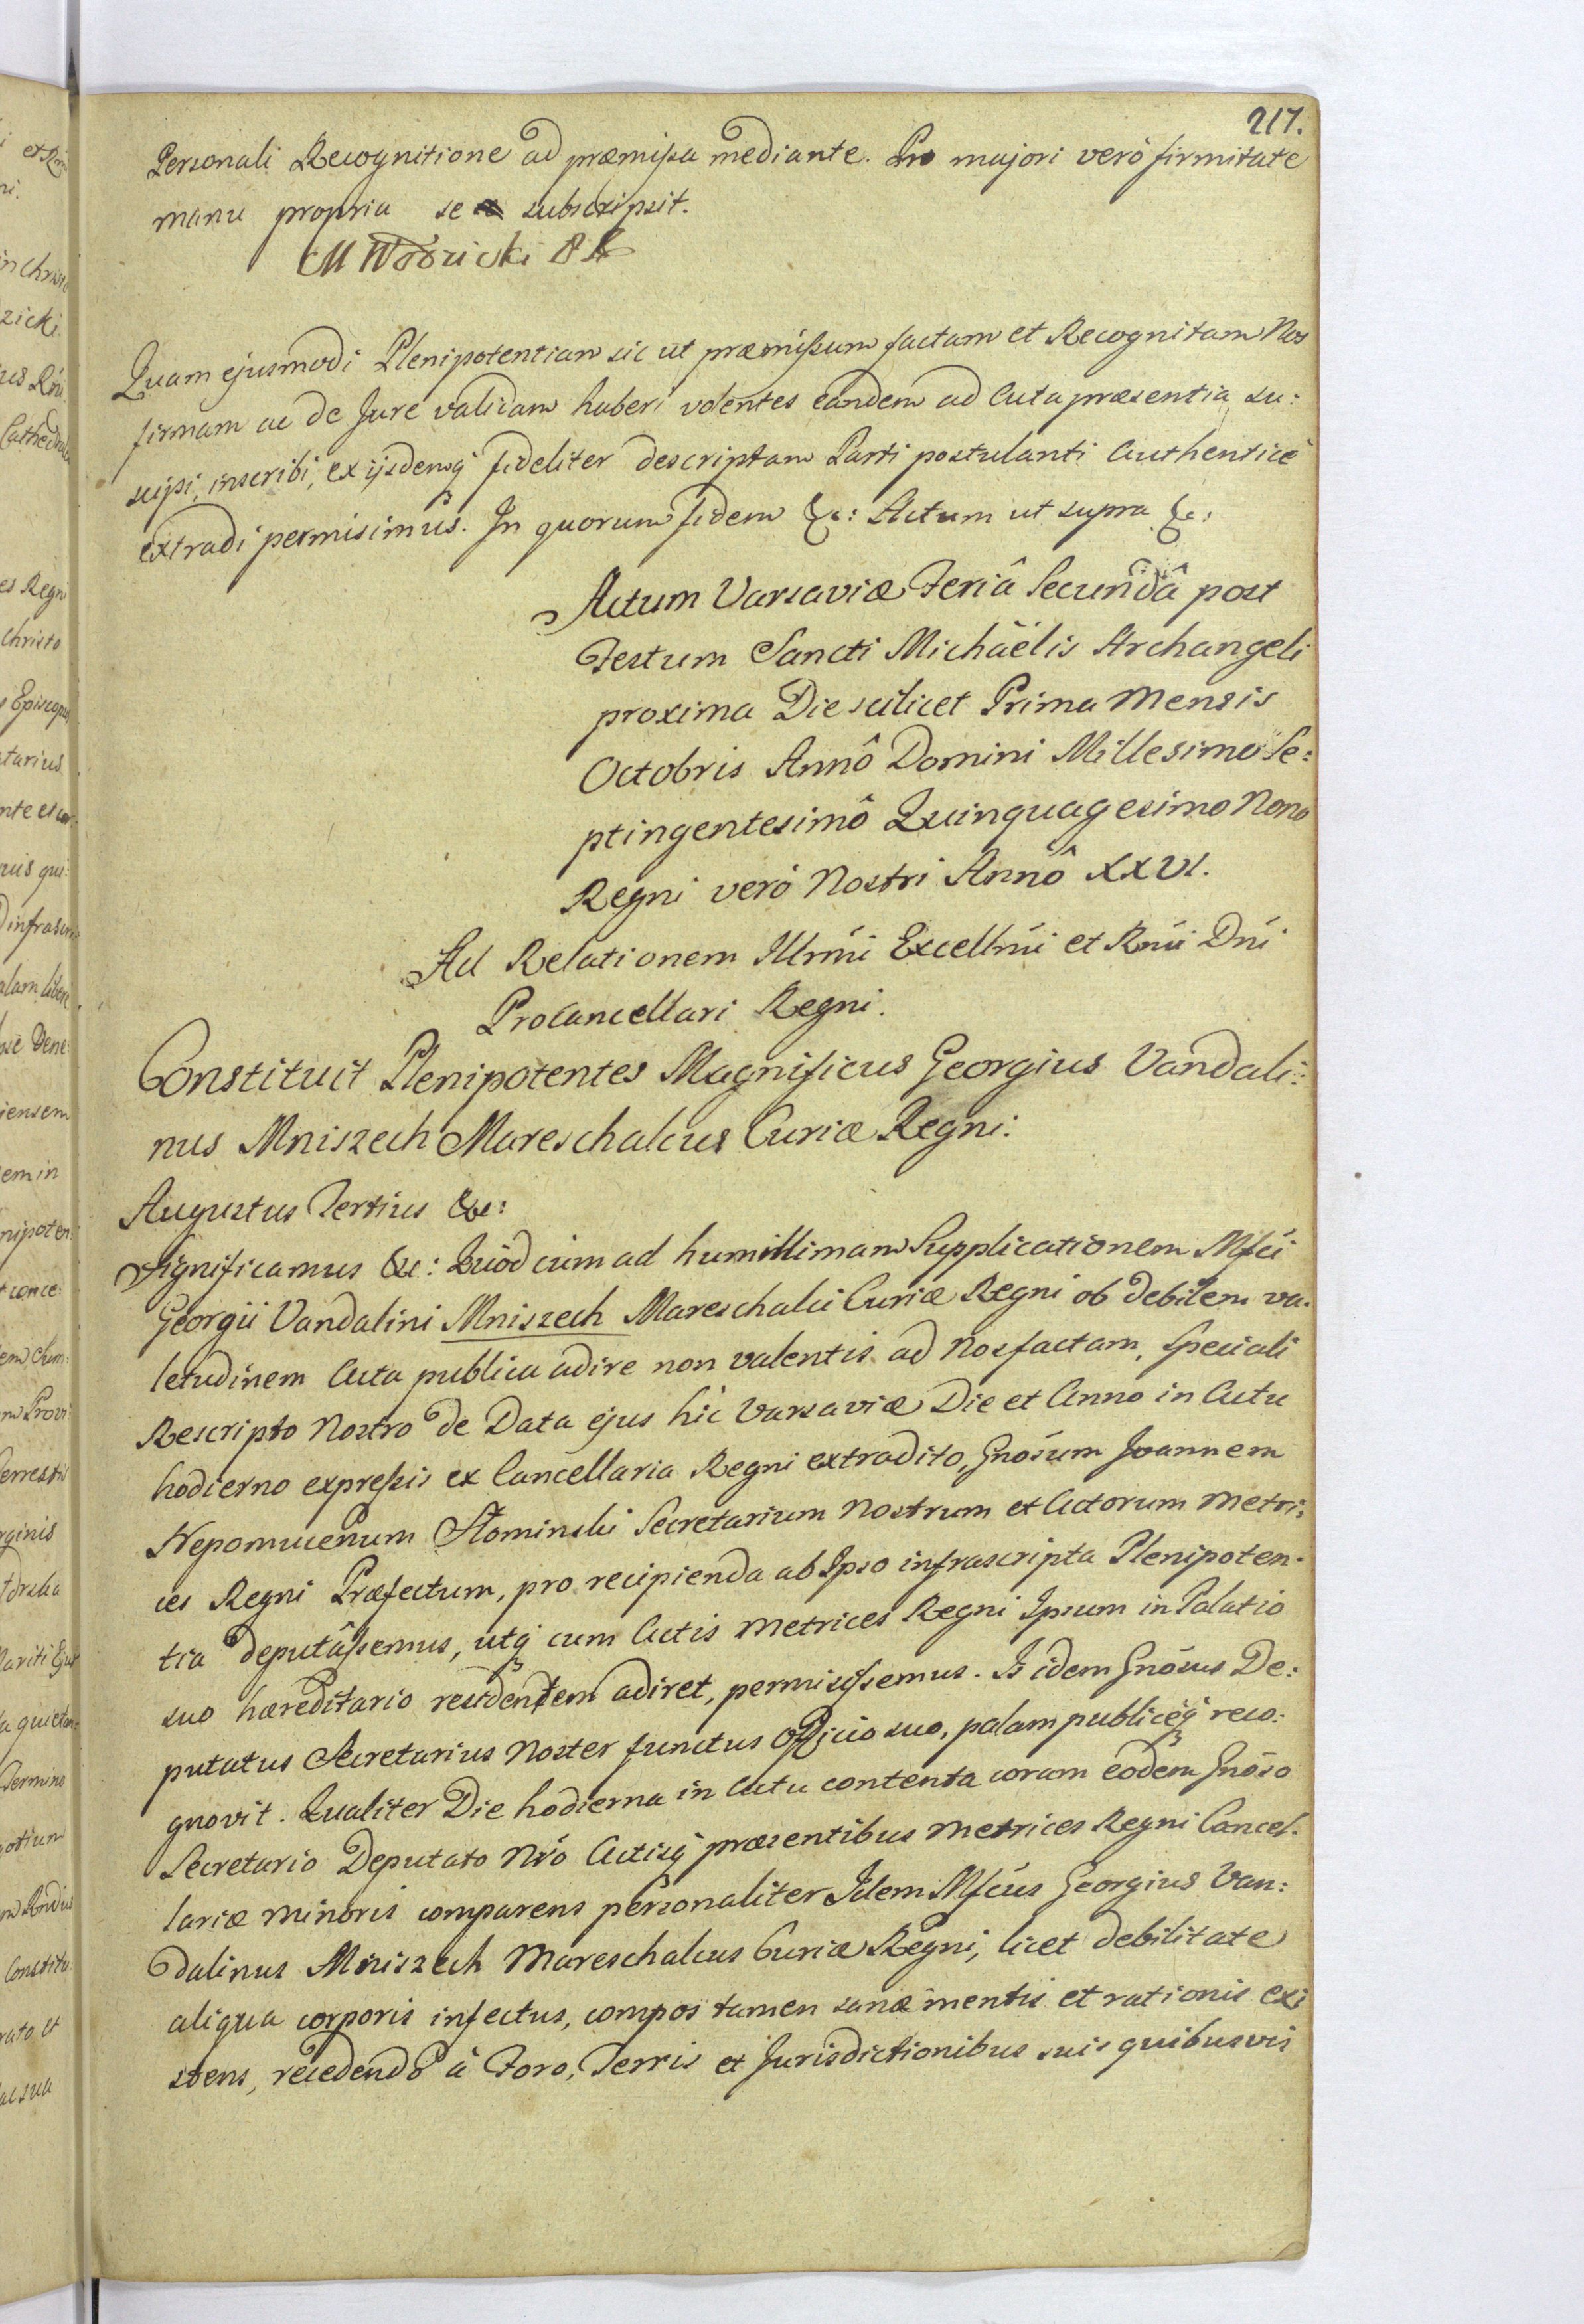 217.
Personali Recognitione ad præmissa mediante. Pro majori verò firmitate
manu propria se subscripsit.
M Wodzicki
Quam ejusmodi Plenipotentiam sic ut præmissum factam et Recognitam Nos
firmam ac de Jure validam haberi volentes eandem ad Acta præsentia su:
scipi, inscribi, ex ijsdemq fideliter descriptam Parti postulanti Authenticè
extradi permisimus. In quorum fidem &c: Actum ut supra &c:
Actum Varsaviæ Feriâ Secundâ post
Festum Sancti Michäelis Archangeli
proxima Die scilicet Prima Mensis
Octobris Annô Domini Millesimo Se:
ptingentesimô Quinquagesimo Nono
Regni verò Nostri Annô XXVI.
Ad Relationem Illmi Excellmi et Rmi Dni
Procancellari Regni.
Constituit Plenipotentes Magnificus Georgius Vandali:
nus Mniszech Mareschalcus Curiæ Regni.
Augustus Tertius &c:
Significamus &c: Quòd cùm ad humillimam Supplicationem Mfci
Georgii Vandalini Mniszech Mareschalci Curiæ Regni ob debilem va-
letudinem Acta publica adire non valentis ad Nos factam, Speciali
Rescripto Nostro de Data ejus hic Varsaviæ Die et Anno in Actu
hodierno expressis ex Cancellaria Regni extradito, Gnosum Joannem
Nepomucenum Słominski Secretarium Nostrum et Actorum Metri:
ces Regni Præfectum, pro recipienda ab Ipso infrascripta Plenipoten-
tia deputâssemus, utq cum Actis Metrices Regni Ipsum in Palatio
suo hæreditario residentem adiret, permisissemus. Is idem Gnosus De:
putatus Secretarius Noster functus Officio suo, palam publicèq reco:
gnovit. Qualiter Die hodierna in Actu contenta coram eodem Gnoso
Secretario Deputato Nro Actisq præsentibus Metrices Regni Cancel-
lariæ Minoris comparens personaliter Idem Mfcus Georgius Van:
dalinus Mniszech Mareschalcus Curiæ Regni, licet debilitate
aliqua corporis infectus, compos tamen sanæ mentis et rationis exi
stens, recedendo à Foro, Terris et Jurisdictionibus suis quibusvis